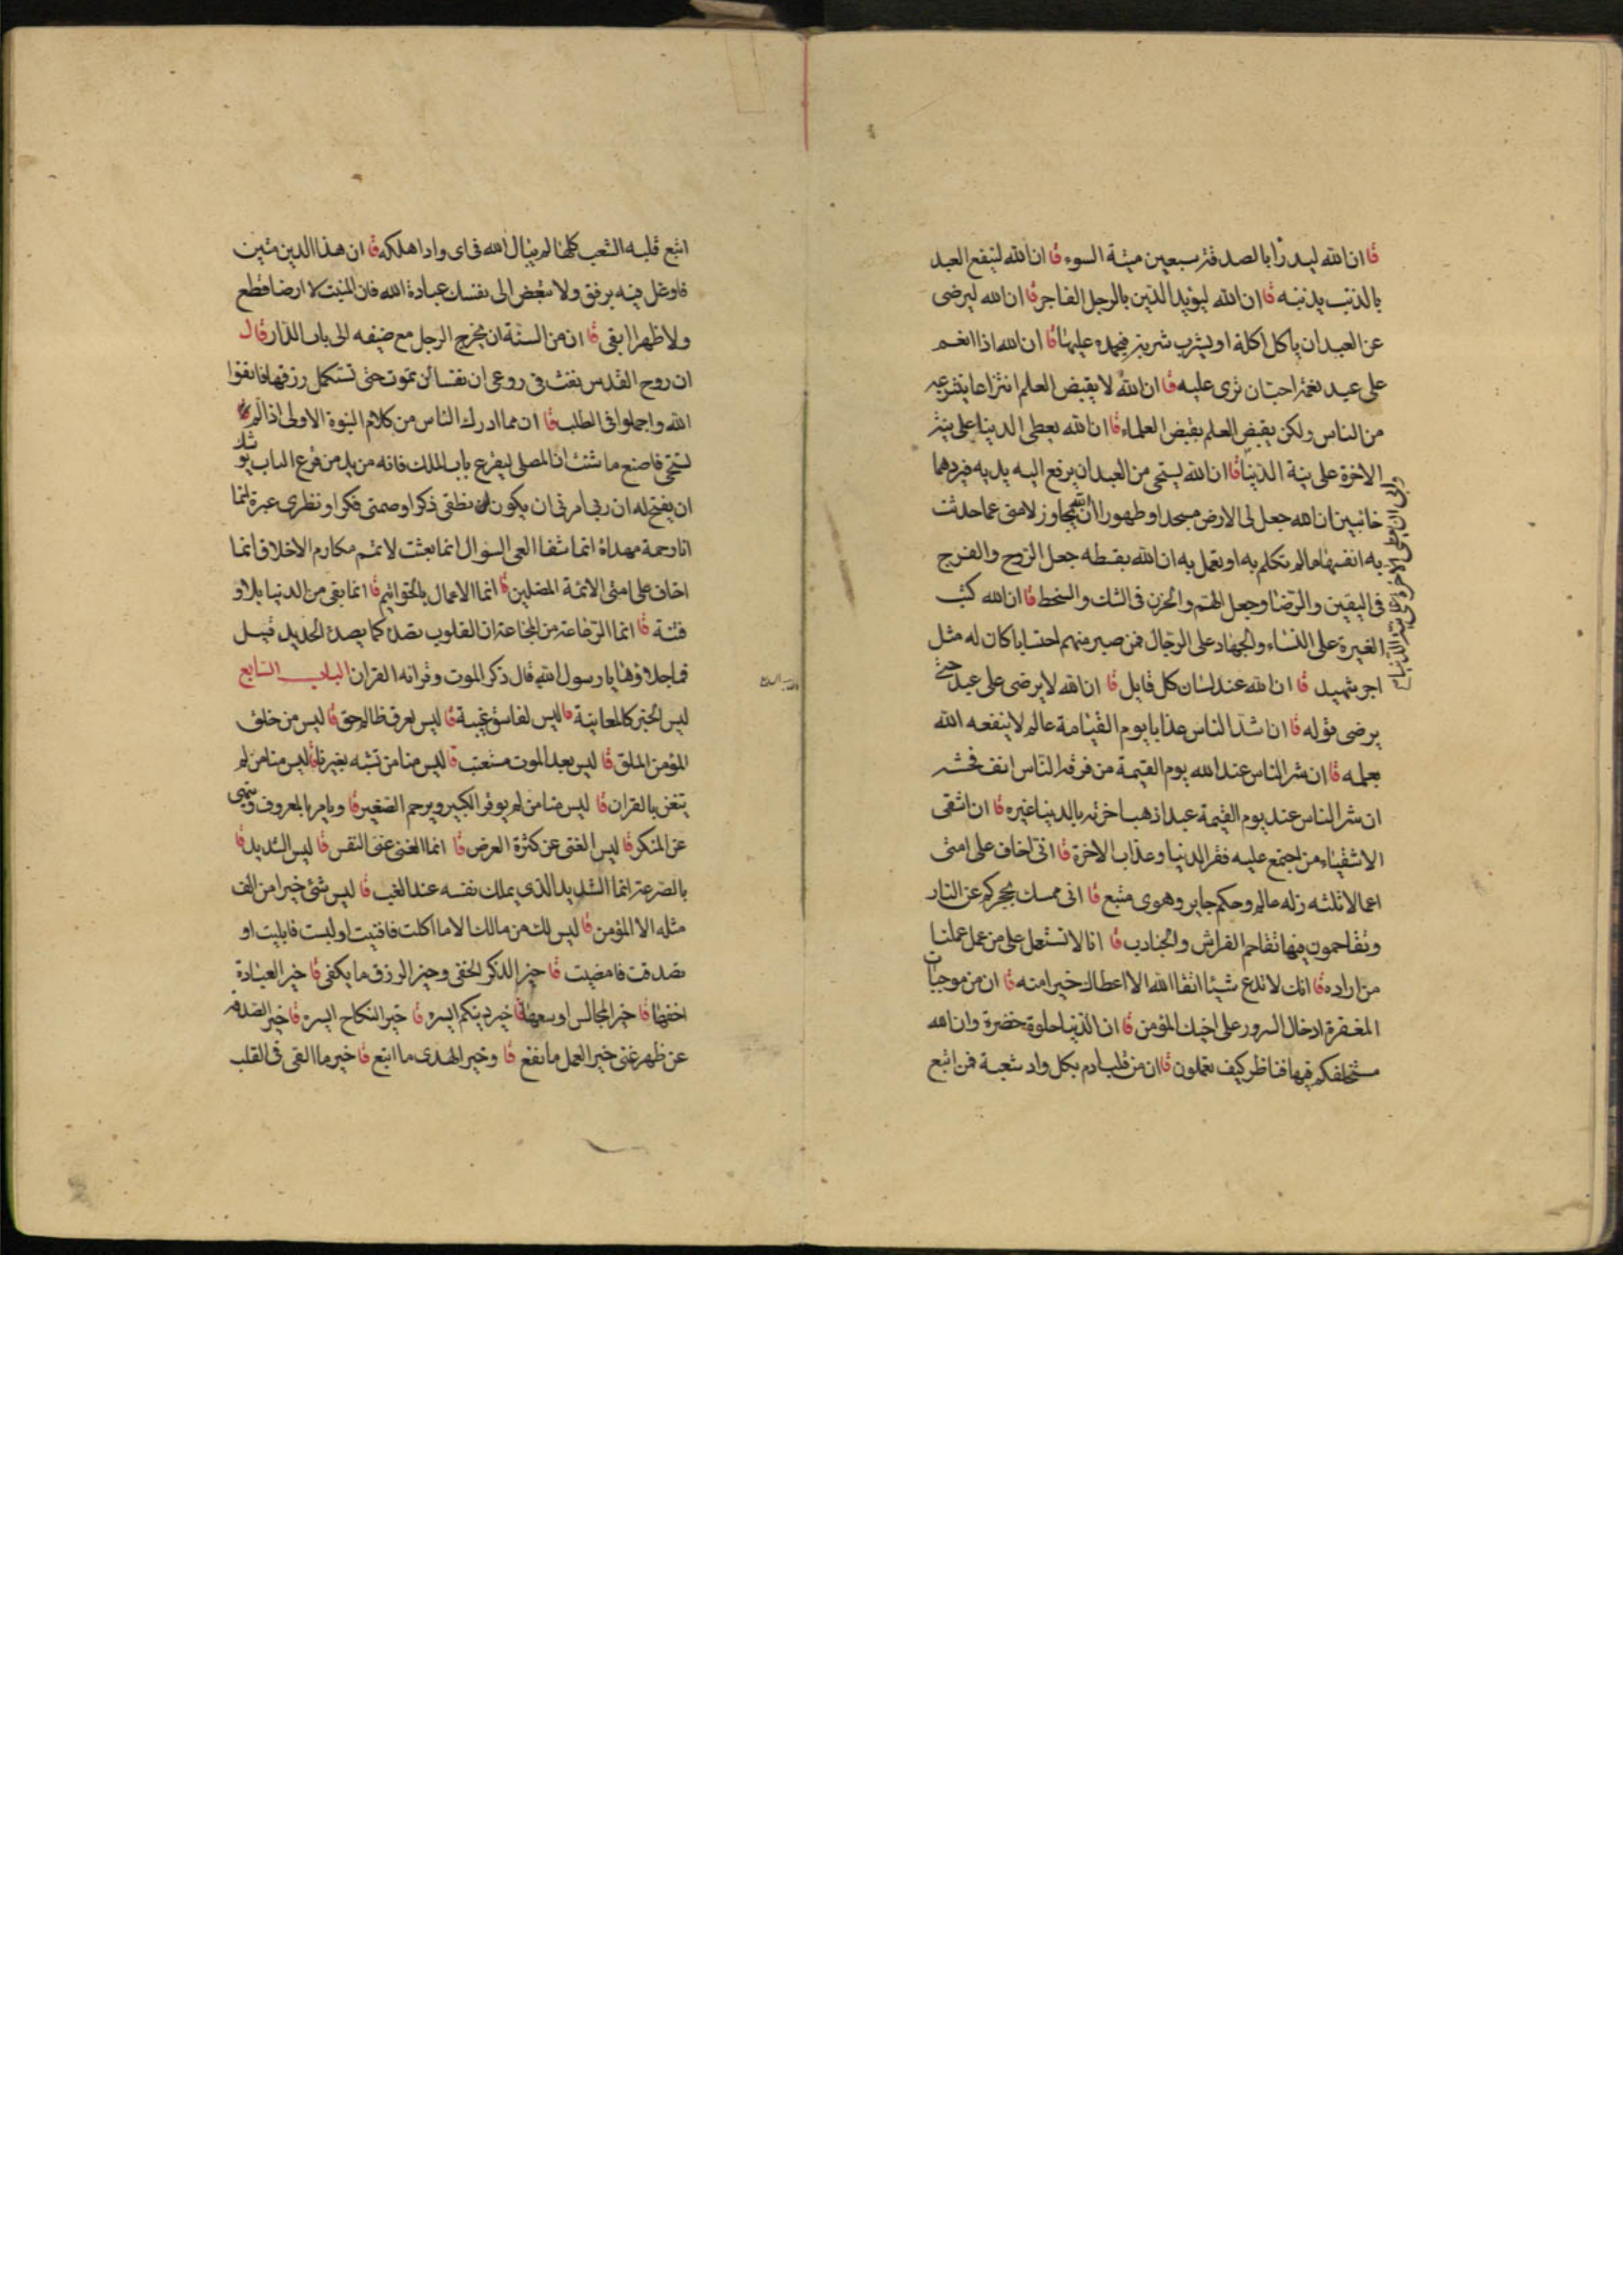 قا ان الله ليدرأ بالصدقة سبعين ميتة السوء قا ان الله لينفع العبد
بالذنب يذنبه قا ان الله ليؤيد الدين بالرجل الفاجر قا ان الله ليرضى
عن العبد ان ياكل اكلة او يشرب شربة فيحمده عليها قا ان الله اذا انعم
على عبد نعمة احب ان ترى عليه قا ان الله لا يقبض العلم انتزاعا ينتزعه
من الناس ولكن يقبض العلم بقبض العلماء قا ان الله يعطى الدنيا على نية
الاخرة على نية الدنيا قا ان الله يستحى من العبد ان يرفع اليه يديه فيردهما
خائبين ان الله جعل لى الارض مسجدا وطهورا ان الله تجاوز لامتى عما حدثت
به انفسها ما لم تتكلم به او تعمل به ان الله بقسطه جعل الروح والفرج
فى اليقين والرضا وجعل الهم والحزن فى الشك والسخط قا ان الله كتب
الغيرة على النساء والجهاد على الرجال فمن صبر منهم احتسابا كان له مثل
اجر شهيد قا ان الله عند لسان كل قايل قا ان الله لا يرضى على عبد حتى
يرضى قوله قا ان اشد الناس عذابا يوم القيامة عالم لا ينفعه الله
بعلمه قا ان شر الناس عند الله يوم القيمة من فرقه الناس اتقاء فحشه
ان شر الناس عند يوم القيمة عبد اذهب اخرته بالدنيا غيره قا ان اشقى
الاشقياء من اجتمع عليه فقر الدنيا وعذاب الاخرة قا انى اخاف على امتى
اعمالا ثلثه زله عالم وحكم جاير وهوى متبع قا انى ممسك بحجزكم عن النار
وتقاحمون فيها تقاحم الفراش والجنادب قا انا لا نستعمل على من عمل عملنا
من اراده قا انك لا تدع شيئا اتقا الله الا اعطاك خيرا منه قا ان من موجبات
المغفرة ادخال السرور على اخيك المؤمن قا ان الدنيا حلوة خضرة وان الله
مستخلفكم فيها فناظر كيف تعملون قا ان من قلب ادم بكل واد شعبة فمن اتبع
اتبع قلبه الشعب كلها لم يبال الله فى اى واد اهلكه قا ان هذا الدين متين
فاوغل فيه برفق ولا تبغض الى نفسك عبادة الله فان المنبت لا ارضا قطع
ولا ظهرا ابقى قا ان من السنة ان يخرج الرجل مع ضيفه الى باب الدار قال
ان روح القدس نفث فى روعى ان نفسا لن تموت حتى تستكمل رزقها فاتقوا
الله واجملوا فى الطلب قا ان مما ادرك الناس من كلام النبوة الاولى اذا لم
تستحى فاصنع ما شئت ان المصلى ليقرع باب الملك فانه من يدمن قرع الباب يوشك
ان يفتح له ان ربى امرنى ان يكون نطقى ذكرا وصمتى فكرا ونظرى عبرة انما
انا رحمة مهداة انما شفا العى السوال انما بعثت لاتمم مكارم الاخلاق انما
اخاف على امتى الائمة المضلين قا انما الاعمال بالخواتيم قا انما بقى من الدنيا بلاو
فتنة قا انما الرضاعة من المجاعة ان القلوب تصدى كما يصدئ الحديد قيل
فما جلاؤها يا رسول الله قال ذكر الموت وقرائه القران الباب السابع
ليس الخبر كالمعاينة قا ليس لفاسق غيبة قا ليس لعرق ظالم حق قا ليس من خلق
المؤمن الملق قا ليس بعد الموت مستعتب قا ليس منا من تشبه بغيرنا قا ليس منا من لم
يتغن بالقران قا ليس منا من لم يوقر الكبير ويرحم الصغير قا ويامر بالمعروف وينهى
عن المنكر قا ليس الغنى عن كثرة العرض قا انما الغنى غنى النفس قا ليس الشديد قا
بالصرعة انما الشديد الذى يملك نفسه عند الغيب قا ليس شئ خيرا من الف
مثله الا المؤمن قا ليس لك من مالك الا ما اكلت فافنيت او لبست فابليت او
تصدقت فامضيت قا خير الذكر الخفى وخير الرزق ما يكفى قا خير العبادة
اخفها قا خير المجالس اوسعها قا خير دينكم ايسره قا خير النكاح ايسره قا خير الصدقة
عن ظهر غنى خير العمل ما نفع قا وخير الهدى ما اتبع قا خير ما القى فى القلب